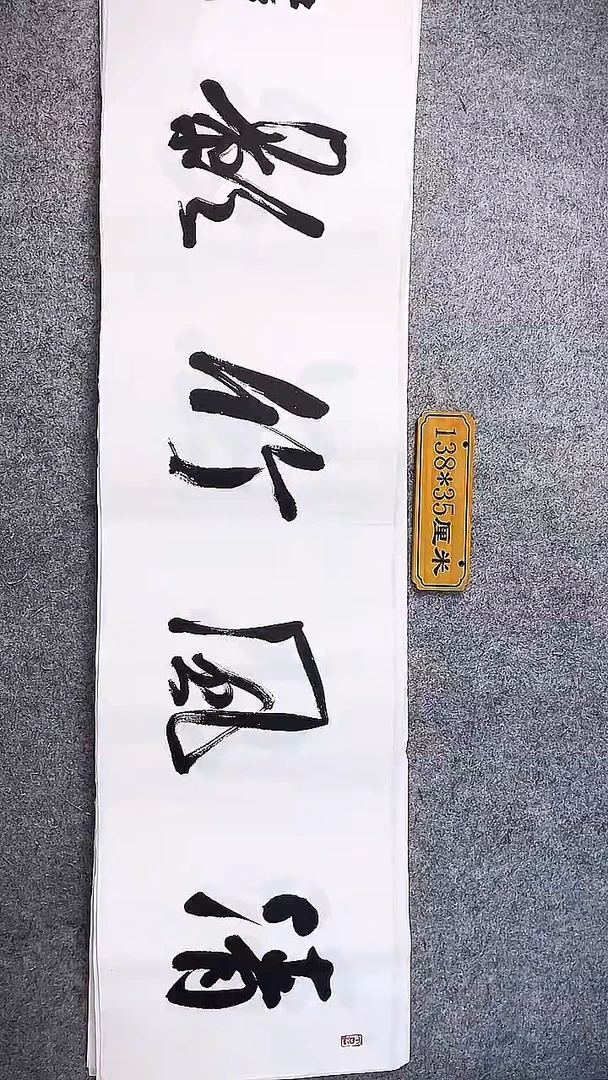 清風竹影
138*35厘米